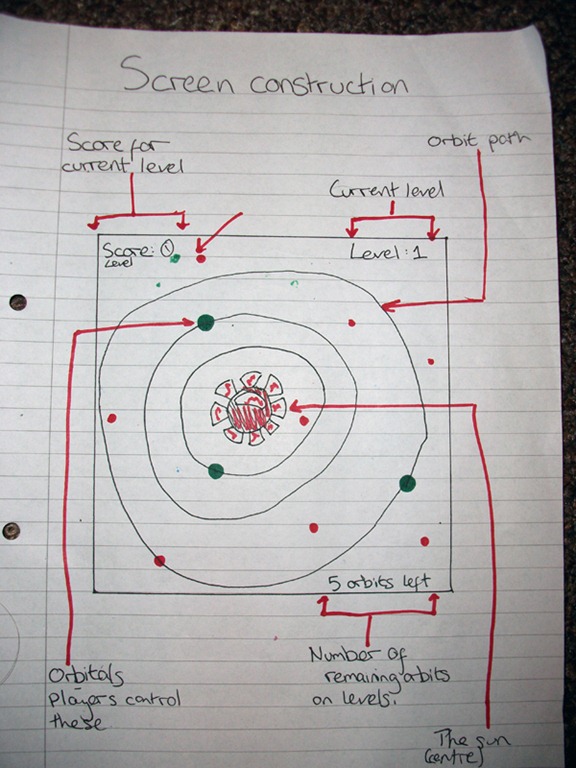 Screen construction
Score for
current level
orbit path
Current level
Score: 0
Level
Level: 1
5 orbits left
Orbitals
players control
these
Number of
remaining orbits
on levels.
The sun
(centre)